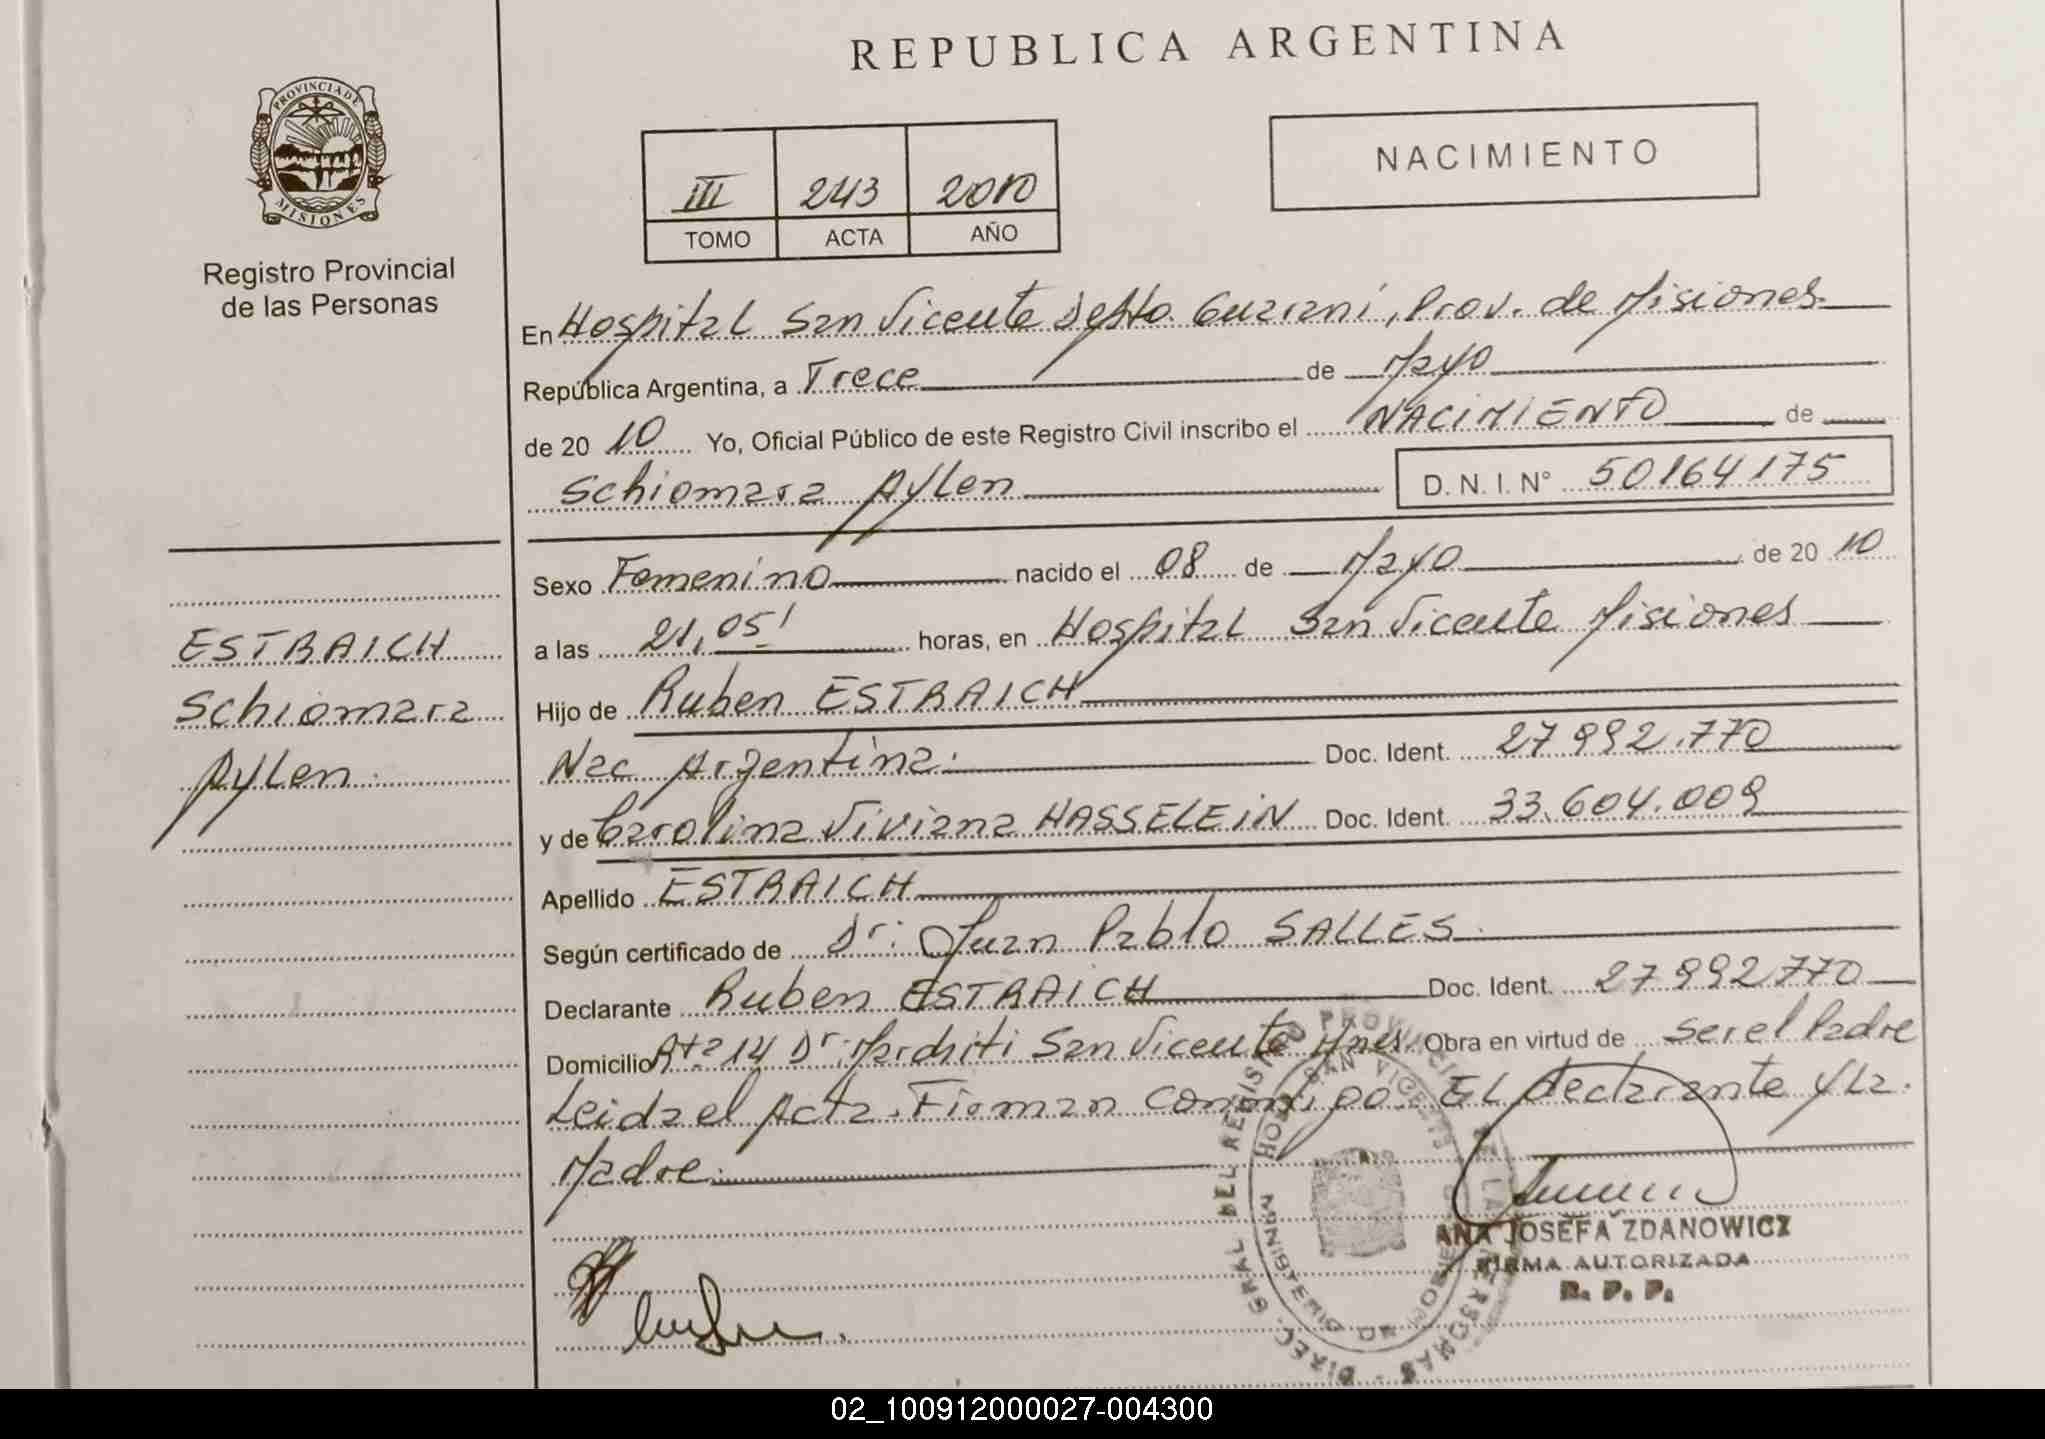 REPUBLICA ARGENTINA
PROVINCIA DE
MISIONES
Registro Provincial
de las Personas
III 243 2010
TOMO ACTA AÑO
NACIMIENTO
En Hospital San Vicente Depto. Guarani, Prov. de Misiones
República Argentina, a Trece de Mayo
de 20 10 Yo, Oficial Público de este Registro Civil inscribo el NACIMIENTO de
Schiomara Aylen D. N. I. N° 50164175
Sexo Femenino nacido el 08 de Mayo de 20 10
a las 21,05' horas, en Hospital San Vicente Misiones
Hijo de Ruben ESTRAICH
Nac Argentina. Doc. Ident. 27992.770
y de Carolina Viviana HASSELEIN Doc. Ident. 33.604.009
Apellido ESTRAICH
Según certificado de Dr: Juan Pablo SALLES
Declarante Ruben ESTRAICH Doc. Ident. 27992770
Domicilio Rta 14 Dr: San Vicente Mnes Obra en virtud de ser el Padre
Leida el Acta. Firman conmigo El declarante y la
Madre
ESTRAICH
Schiomara
Aylen
DIREC. GRAL DEL REGISTRO PROVINCIAL DE LAS PERSONAS
HOSP. SAN VICENTE
MINISTERIO DE GOBIERNO
ANA JOSEFA ZDANOWICZ
FIRMA AUTORIZADA
R. P. P.
02_100912000027-004300